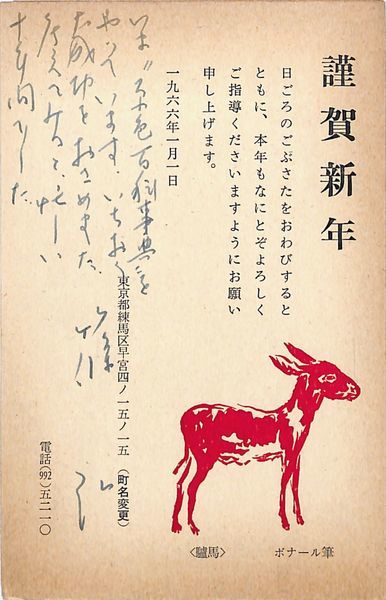 謹賀新年
日ごろのごぶさたをおわびすると
ともに、本年もなにとぞよろしく
ご指導くださいますようにお願い
申し上げます。
一九六六年一月一日
原色百科事典を
やっています、いちおう
大成功をおさめました、
考えてみると、忙しい
十年間でした
東京都練馬区早宮四ノ一五ノ一五 (町名変更)
電話(992)五二一〇
〈驢馬〉
ボナール筆